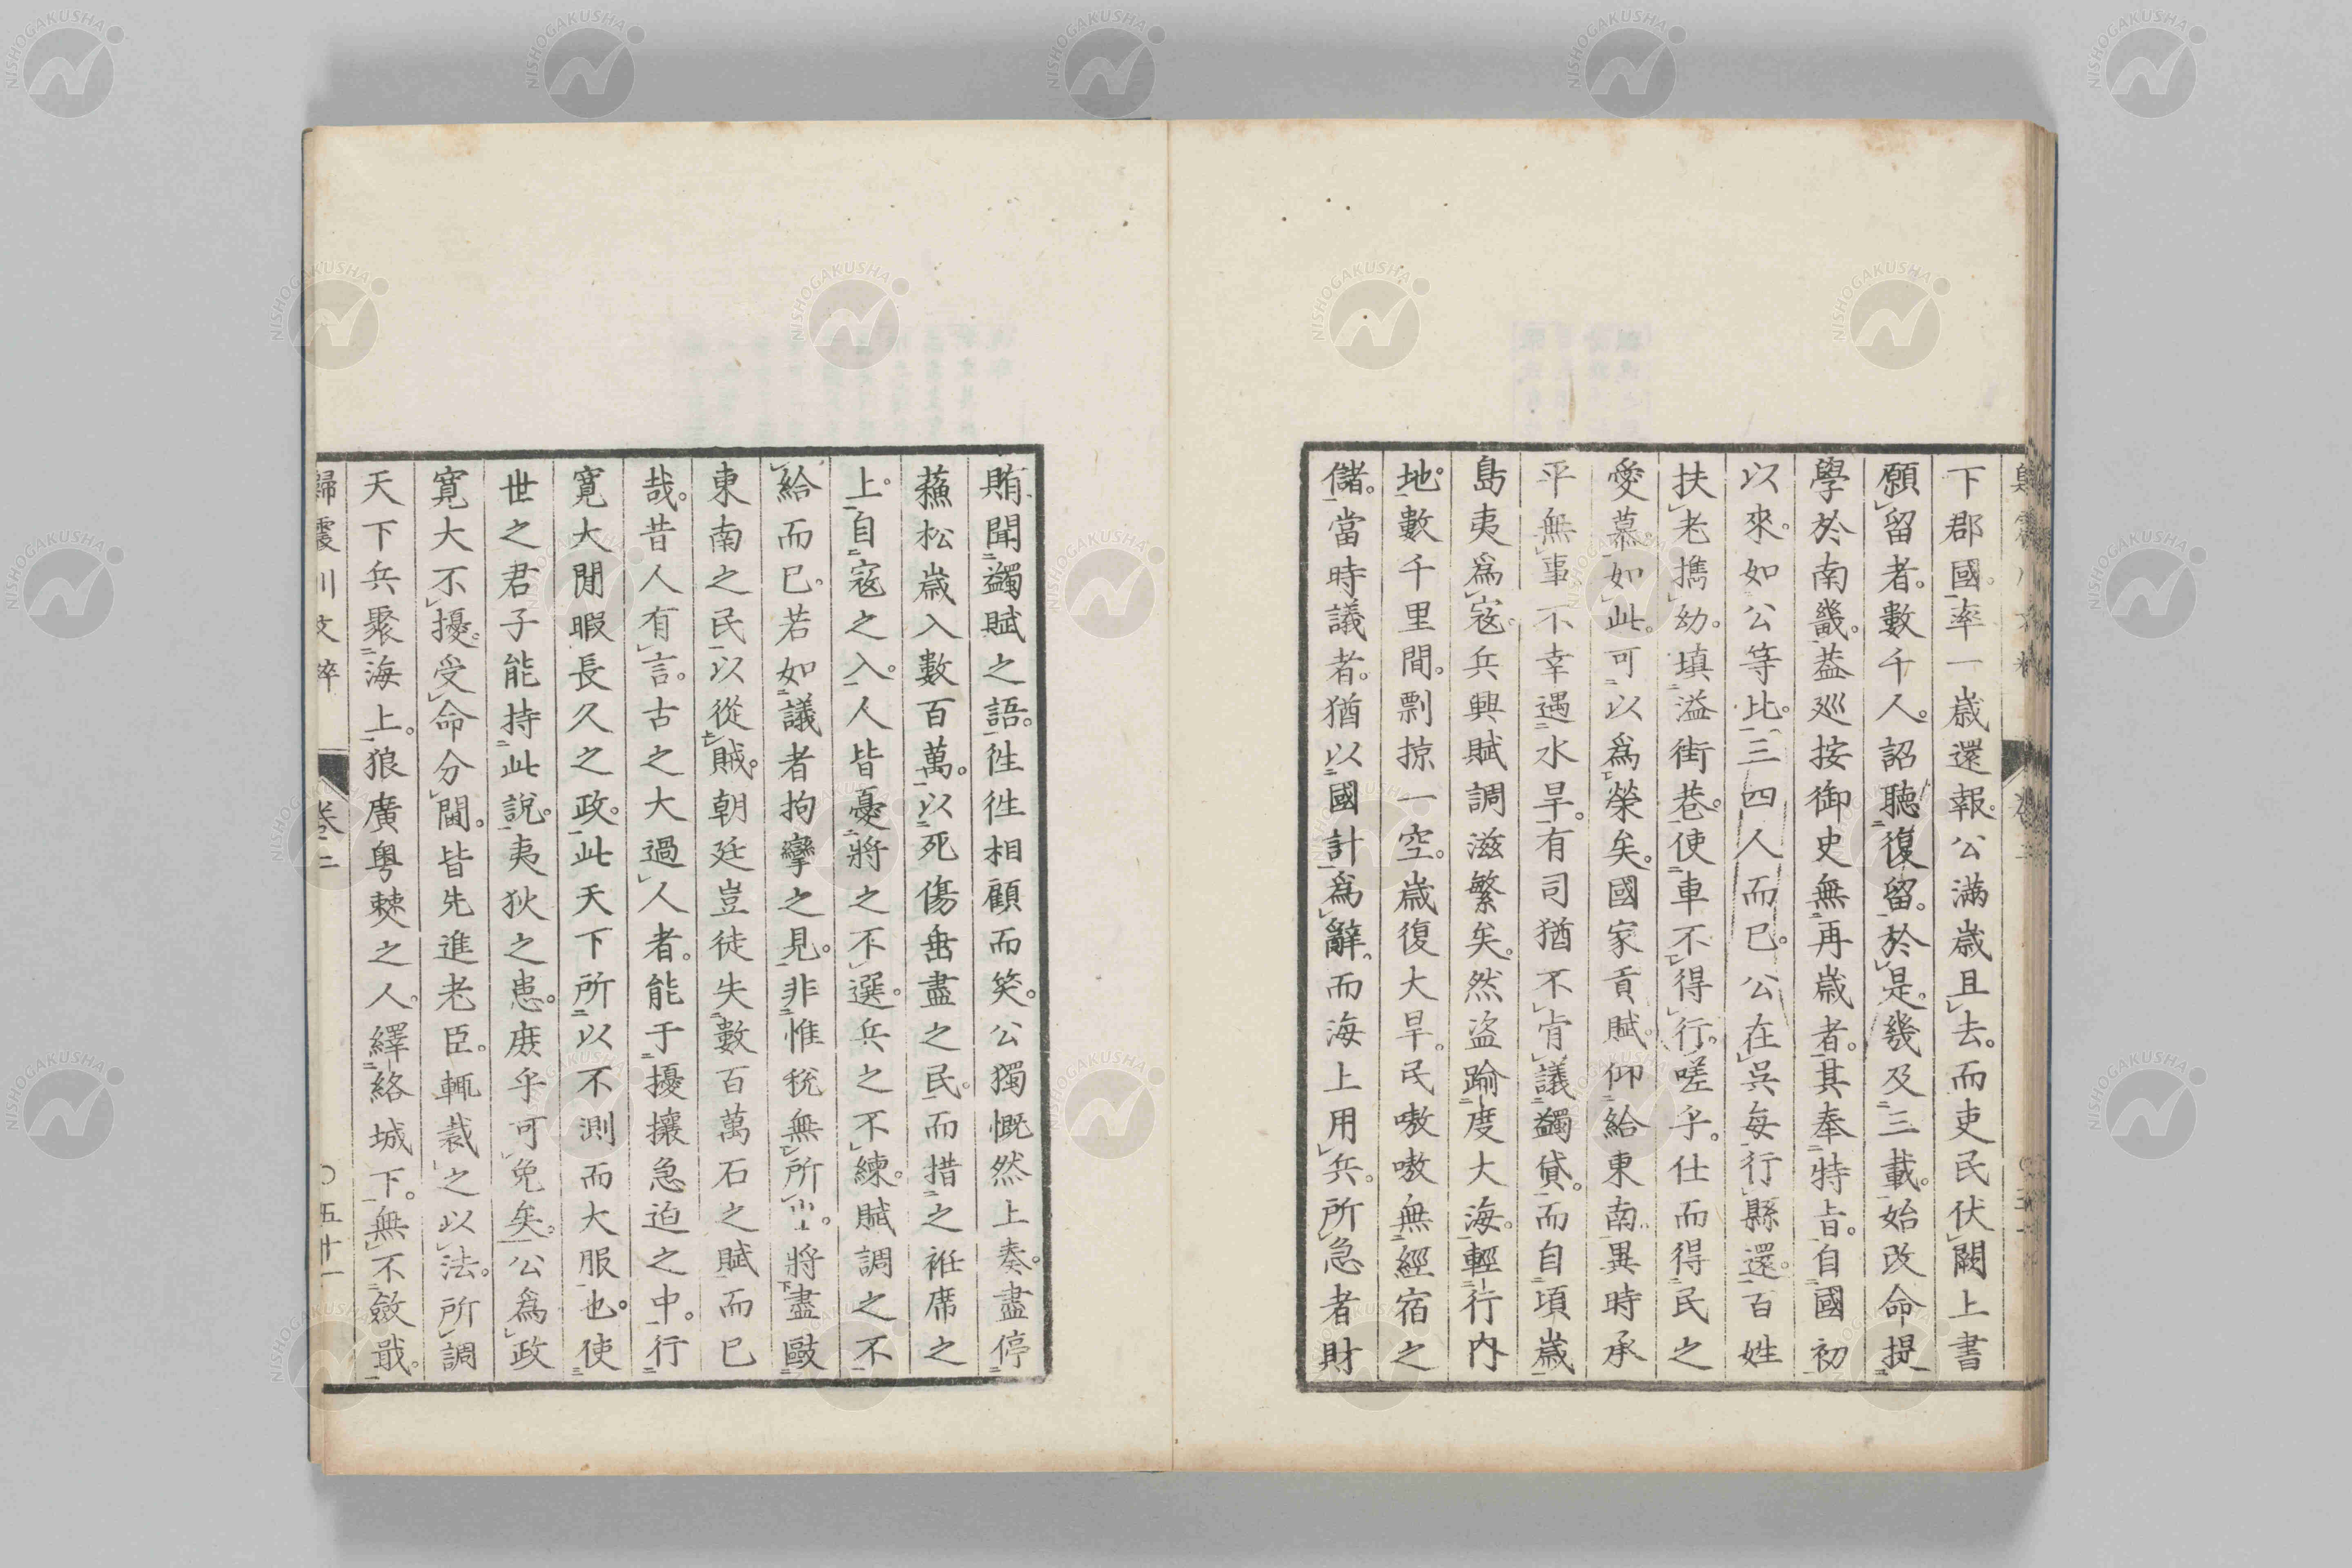 下郡國。率一歳還報。公滿歳且去。而吏民伏闕上書
願留者。數千人。詔聽復留。於是。幾及三載。始改命提
學於南畿。葢巡按御史無再歳者。其奉特旨。自國初
以來。如公等比。三四人而已。公在吳毎行縣還。百姓
扶老攜幼。填溢街巷。使車不得行。嗟乎。仕而得民之
愛慕如此。可以爲榮矣。國家貢賦。仰給東南。異時承
平無事。不幸遇水旱。有司猶不肯議蠲貸。而自頃歳
島夷爲寇。兵興賦調滋繁矣。然盗踰度大海。輕行内
地。數千里間。剽掠一空。歳復大旱。民嗷嗷無經宿之
儲。當時議者。猶以國計爲辭。而海上用兵。所急者財
賄聞蠲賦之語。徃徃相顧而笑。公獨慨然上奏。盡停
蘓松歳入數百萬。以死傷垂盡之民。而措之袵席之
上。自寇之入。人皆憂將之不選。兵之不練。賦調之不
給而已。若如議者拘攣之見。非惟稅無所出。將盡敺
東南之民以從賊。朝廷豈徒失數百萬石之賦而已
哉。昔人有言。古之大過人者。能于擾攘急迫之中。行
寛大閒暇長久之政。此天下所以不測而大服也。使
世之君子能持此說。夷狄之患。庻乎可免矣。公爲政
寛大不擾。受命分閫。皆先進老臣。輒裁之以法。所調
天下兵聚海上。狼廣粤僰之人。繹絡城下。無不斂戢。
歸震川文粹 卷二 〇五十一
NISHOGAKUSHA